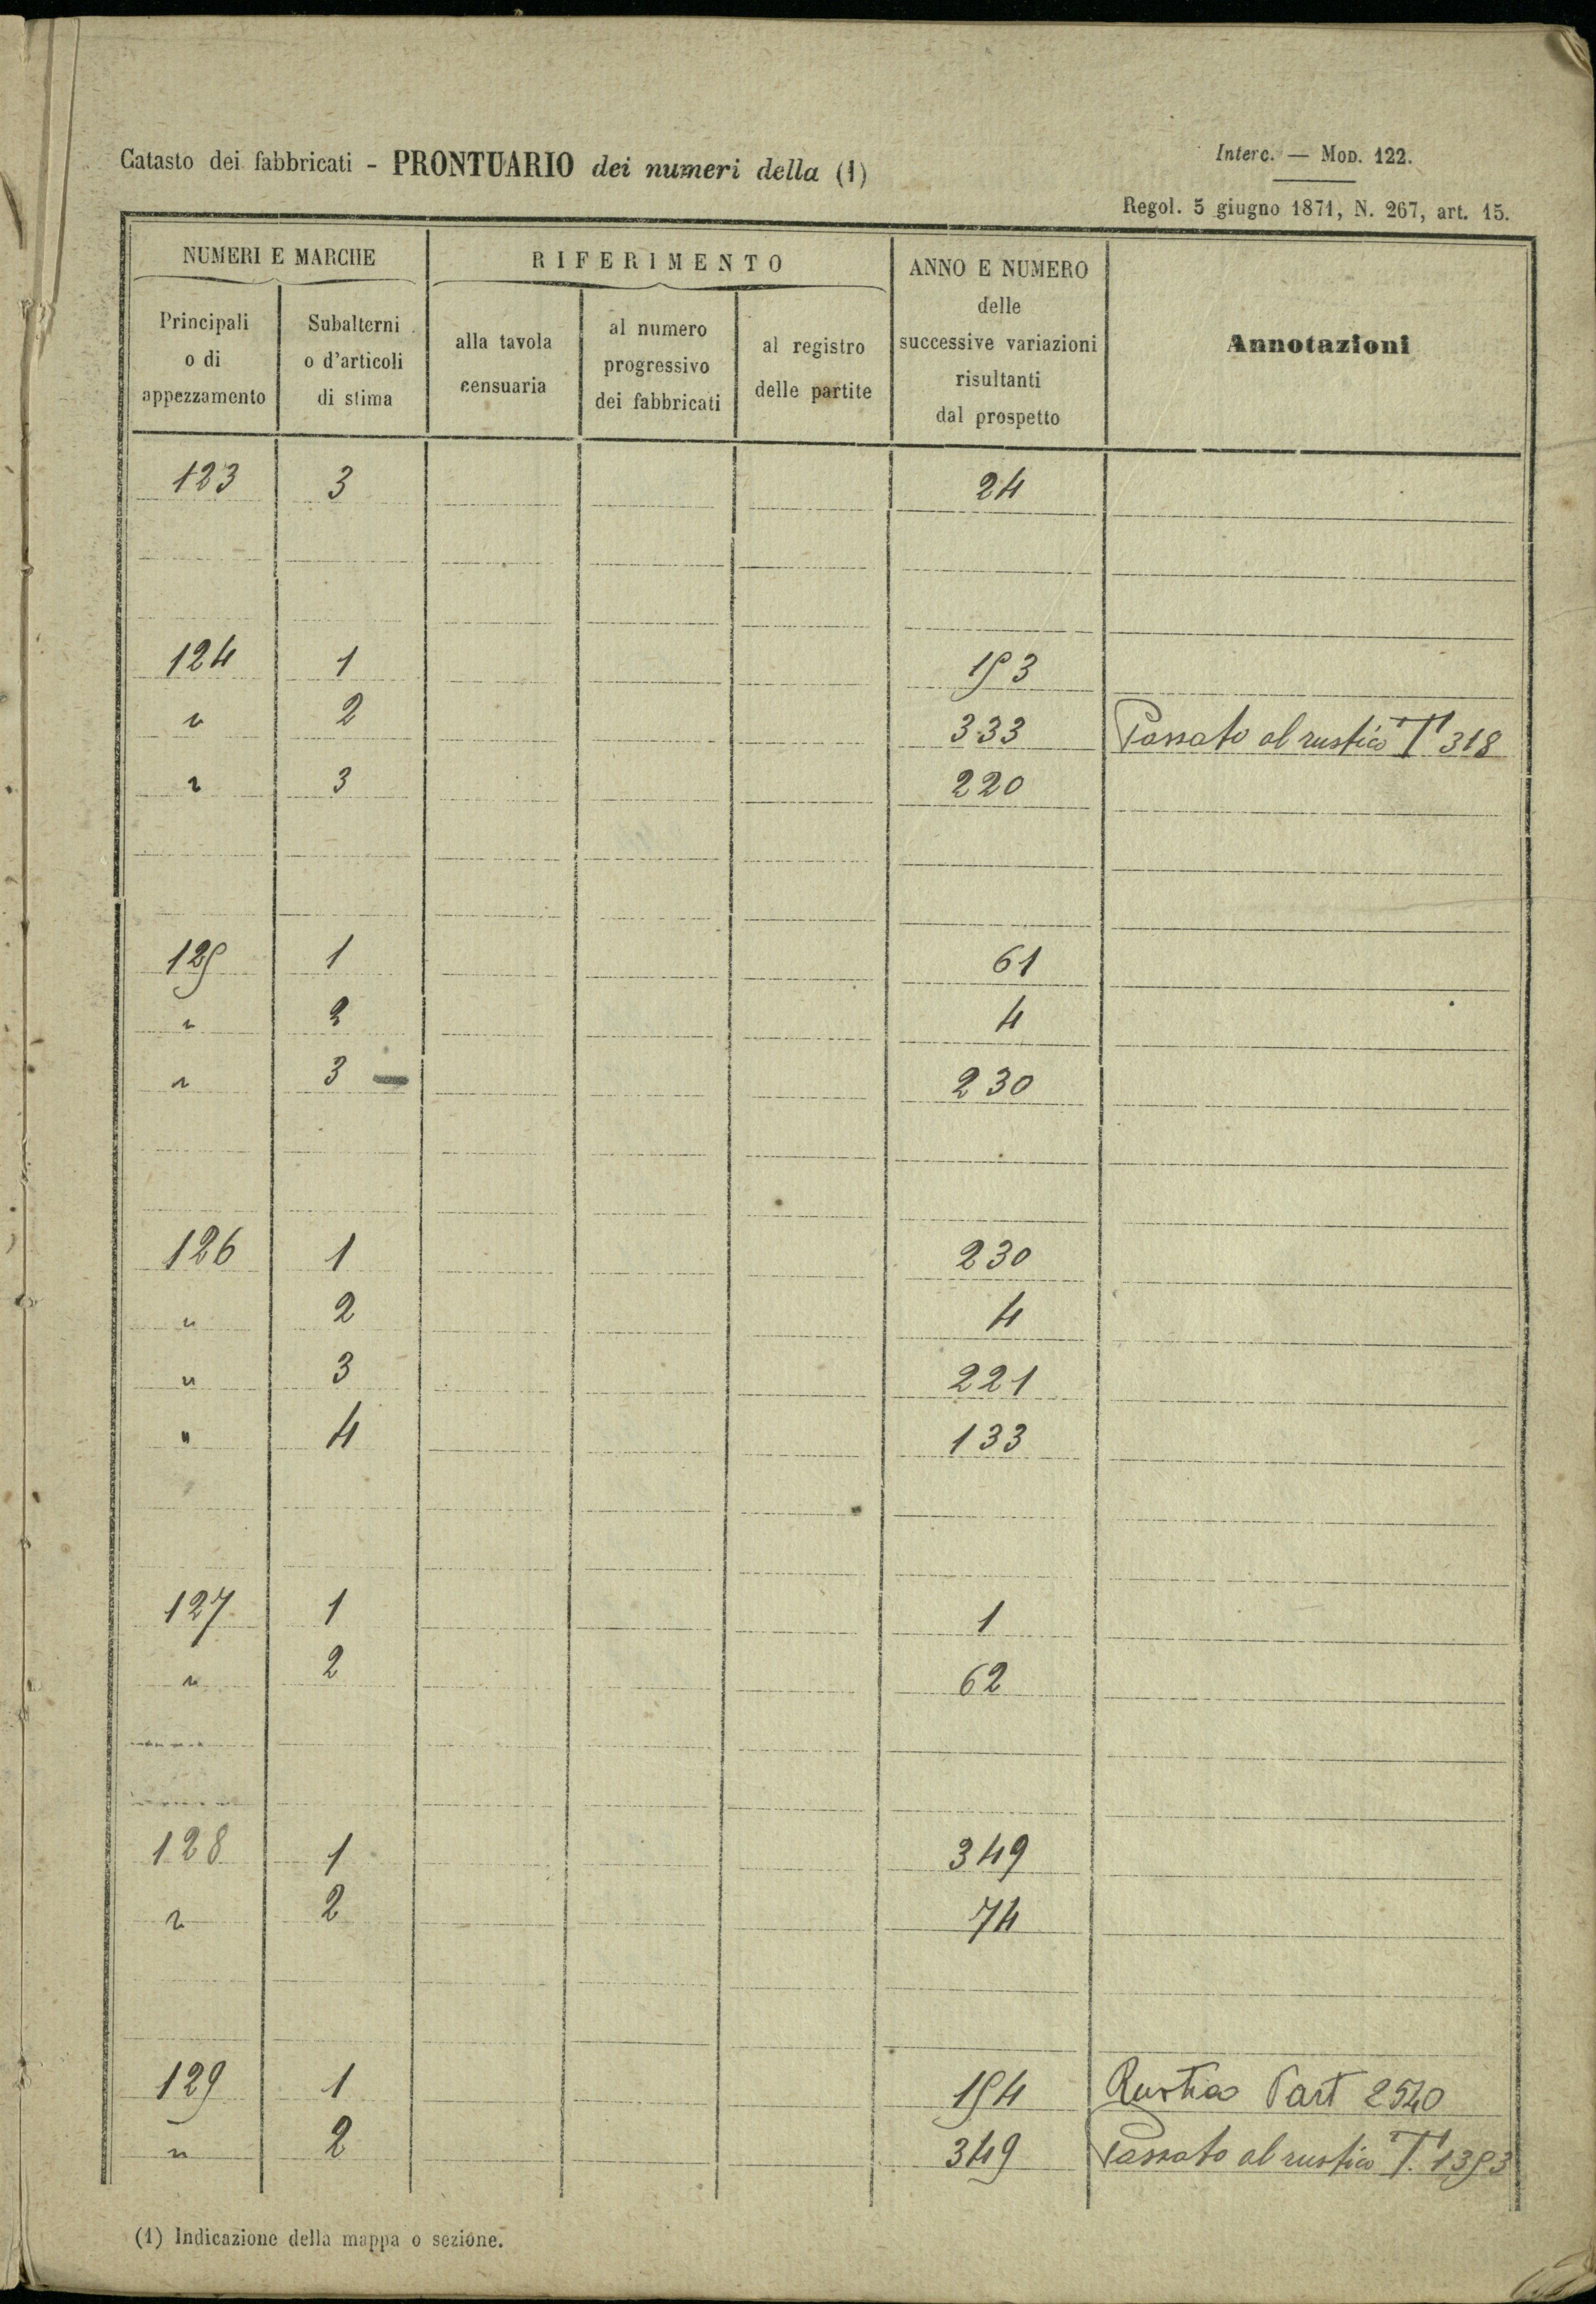 Catasto dei fabbricati - PRONTUARIO dei numeri della (1)
Interc. — Mod. 122.
Regol. 5 giugno 1871, N. 267, art. 15.
NUMERI E MARCHE
RIFERIMENTO
ANNO E NUMERO
delle
successive variazioni
risultanti
dal prospetto
Annotazioni
Principali
o di
appezzamento
Subalterni
o d'articoli
di stima
alla tavola
censuaria
al numero
progressivo
dei fabbricati
al registro
delle partite
123 3 24
124 1 153
" 2 333 Passato al rustico T 318
" 3 220
125 1 61
" 2 4
" 3 230
126 1 230
" 2 4
" 3 221
" 4 133
127 1 1
" 2 62
128 1 349
" 2 74
129 1 154 Rustico Part 2540
" 2 349 Passato al rustico T. 1353
(1) Indicazione della mappa o sezione.